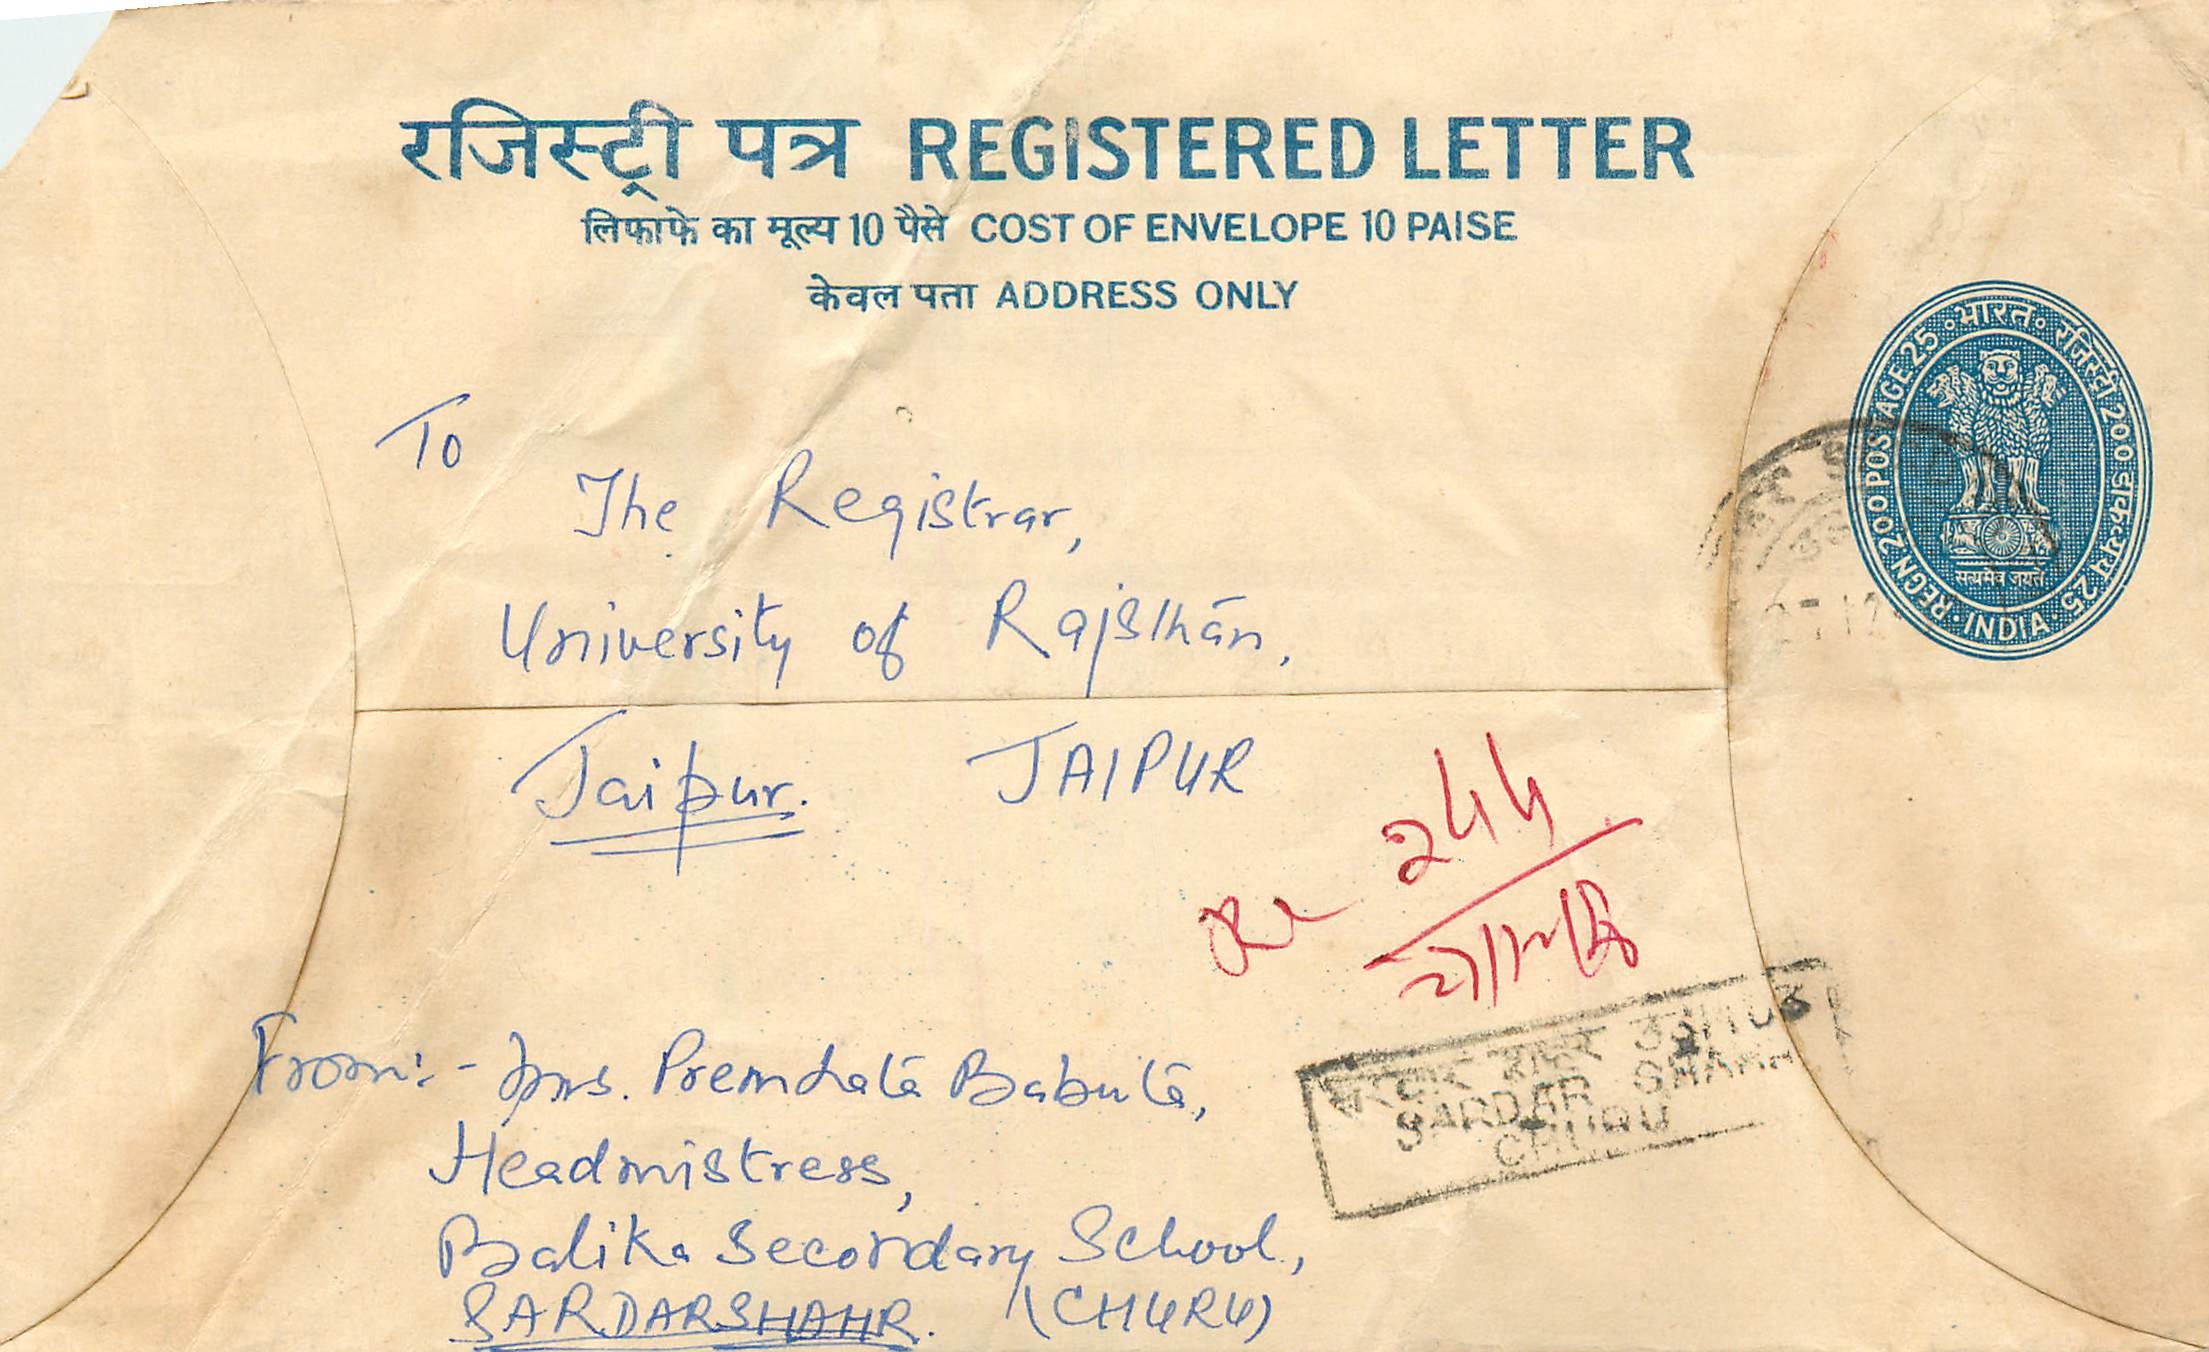 रजिस्ट्री पत्र REGISTERED LETTER
लिफाफे का मूल्य 10 पैसे COST OF ENVELOPE 10 PAISE
केवल पता ADDRESS ONLY
भारत रजिस्ट्री 200 डाकटरूप 25
REGN 200 POSTAGE 25
INDIA
सत्यमेव जयते
To
The Registrar,
University of Rajsthān.
Jaipur. JAIPUR
२५५
From:- Mrs. Premlatā Babutā,
Headmistress,
Balika Secondary School,
SARDARSHAHR. (CHURU)
SARDAR SHAHR
CHURU